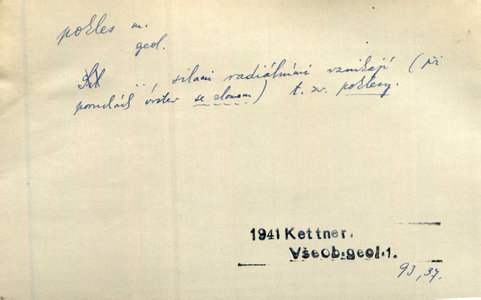 pokles m.
geol.
.., silami radiálními vznikají (při
poruchách vrstev se zlomem) t. zv. poklesy.
1941 Kettner.
Všeob.geol.1.
93, 37.